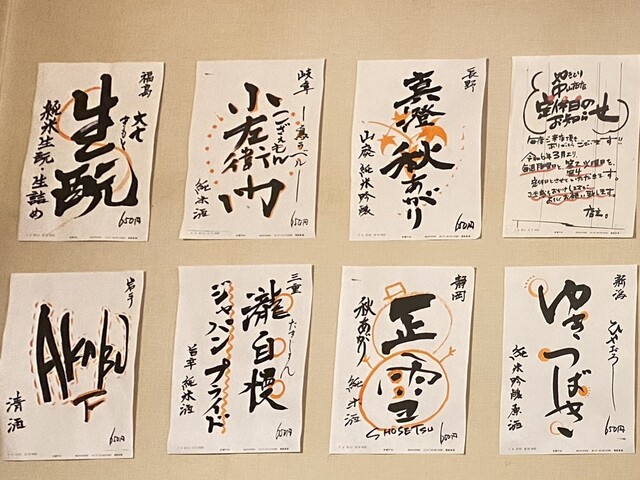 福島
大七
生酛
純米生酛・生詰め
650円
岐阜
小左衛門
こざえもん
純米酒
650円
長野
真澄
秋あがり
山廃 純米吟醸
650円
やきとり
定休日の
お知らせ
令和6年3月より
定休日とさせていただきます。
店主。
岩手
AKABU
清酒
650円
三重
瀧自慢
ジャパンプライド
旨辛 純米酒
650円
静岡
正雪
SHOSETSU
秋あがり
純米酒
650円
新潟
ひやおろし
ゆきつばき
純米吟醸原酒
650円